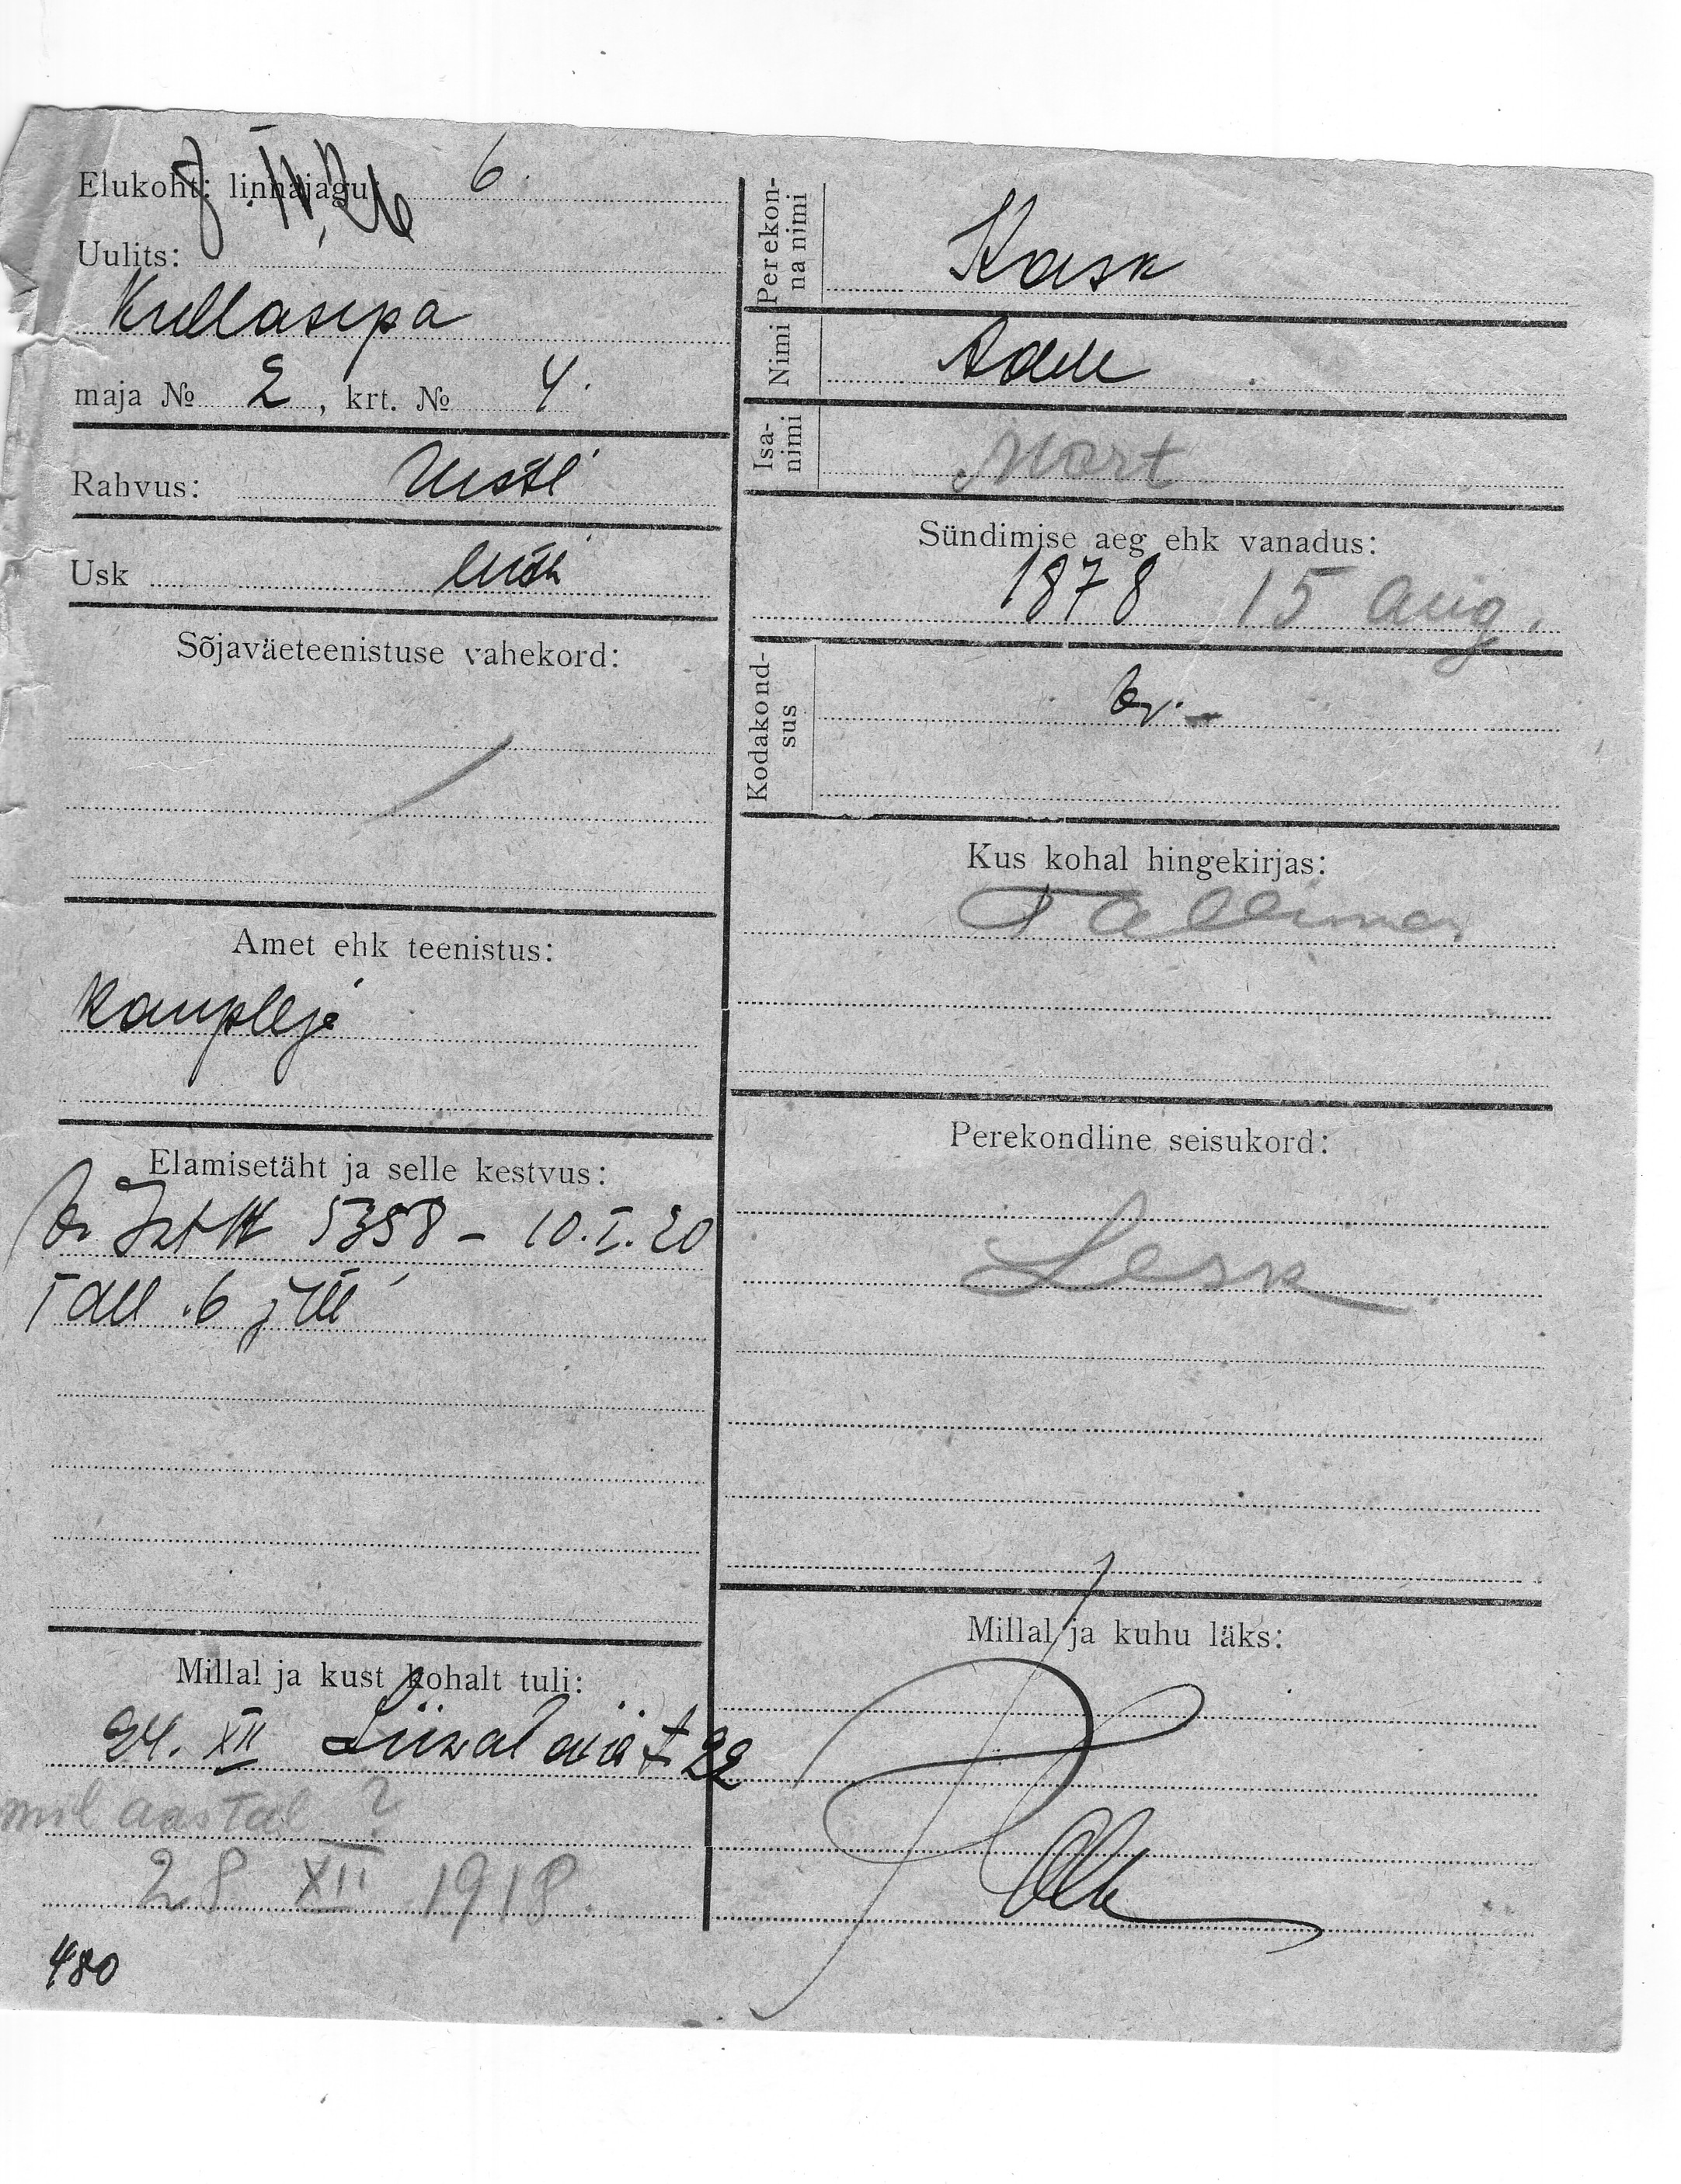 Elukoht: linnajagu 6.
Uulits:
Kullasepa
maja № 2, krt. № 4.
Rahvus: Eesti
Usk
Sõjaväeteenistuse vahekord:
Amet ehk teenistus:
Kaupleja
Elamisetäht ja selle kestvus:
5358 – 10.I.20
Tall. 6 j
Millal ja kust kohalt tuli:
24. XII 22
mil aastal ?
28 XII 1918.
480
Perekon-
na nimi
Kask
Nimi
Adele
Isa-
nimi
Mart
Sündimise aeg ehk vanadus:
1878 15 aug.
Kodakond-
sus
Kus kohal hingekirjas:
Tallinnas
Perekondline seisukord:
Lesk
Millal ja kuhu läks: